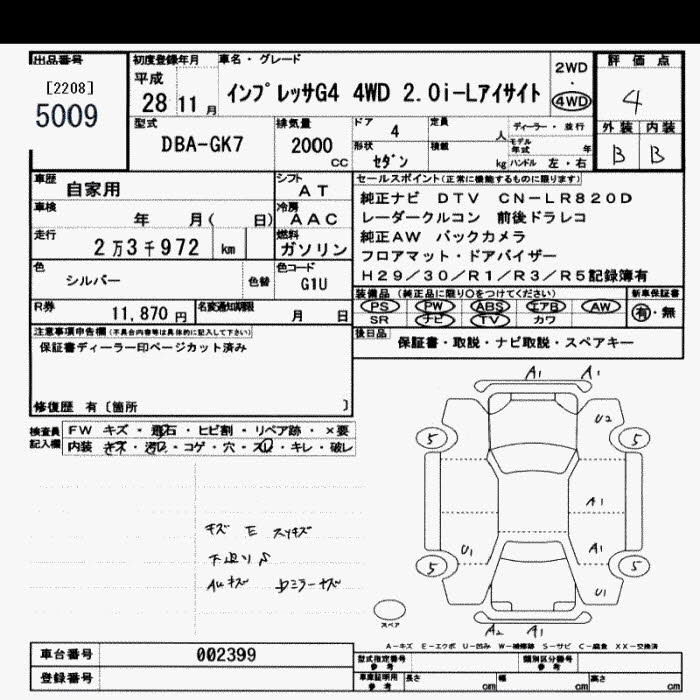 出品番号
[2208]
5009
初度登録年月
平成
28 11 月
車名・グレード
インプレッサG4 4WD 2.0i-Lアイサイト
2WD
・
4WD
評価点
4
外装 内装
B B
型式
DBA-GK7
排気量
2000
cc
ドア
4
定員
人
ディーラー・並行
モデル年式 年
形状
セダン
積載
kg
ハンドル 左・右
車歴
自家用
シフト
AT
車検
年 月( 日)
冷房
AAC
走行
2万3千972 km
燃料
ガソリン
色
シルバー
色替
色コード
G1U
R券
11,870 円
名変通知期限
月 日
セールスポイント(正常に機能するものに限ります)
純正ナビ DTV CN-LR820D
レーダークルコン 前後ドラレコ
純正AW バックカメラ
フロアマット・ドアバイザー
H29/30/R1/R3/R5記録簿有
装備品 (純正品に限り○をつけてください)
PS PW ABS エアB AW
SR ナビ TV カワ
新車保証書
有・無
後日品
保証書・取説・ナビ取説・スペアキー
注意事項申告欄(不具合内容等は具体的に記入して下さい)
保証書ディーラー印ページカット済み
修復歴 有〔箇所 〕
検査員記入欄
FW キズ・飛石・ヒビ割・リペア跡・×要
内装 キズ・汚れ・コゲ・穴・スレ・キレ・破レ
キズ E スリキズ
下廻りS
AWキズ
A1 A1
U2
5 5
A1
U1 A1
5 5
U1
スペア
A2 A1
A-キズ E-エクボ U-凹み W-補修跡 S-サビ C-腐食 XX-交換済
車台番号 002399
登録番号
型式指定番号 参考
類別区分番号 参考
車庫証明用 参考
長さ cm
幅 cm
高さ cm